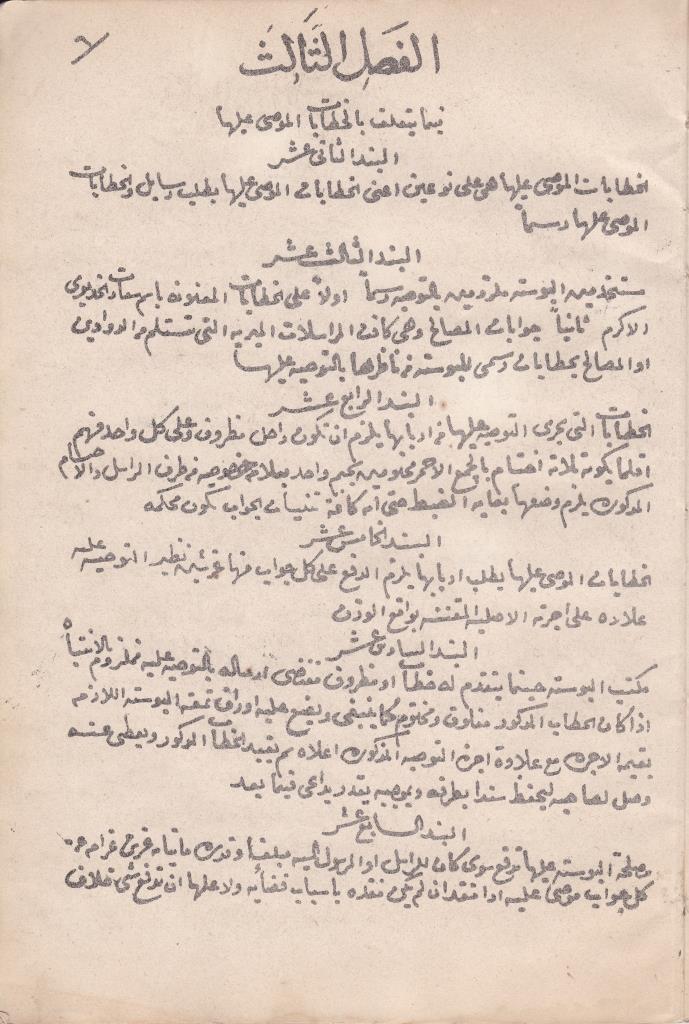 ٦
الفصل الثالث
فيما يتعلق بالخطابات الموصى عليها
البند الثانى عشر
الخطابات الموصى عليها هى على نوعين اعنى الخطابات الموصى عليها بطلب رسايل والخطابات
الموصى عليها رسماً
البند الثالث عشر
مستخدمين البوسته ملزومين بالتوصيه رسماً اولاً على الخطابات المعنونه باسم سعادة الخديوى
الاكرم ثانياً جوابات المصالح وهى كافة المراسلات الميريه التى تستلم من الدواوين
او المصالح بخطابات رسمى للبوسته من ناظرها بالتوصيه عليها
البند الرابع عشر
الخطابات التى يجرى التوصيه عليها من اربابها يلزم ان تكون داخل مظروف وعلى كل واحد منهم
اقلما يكونه ثلاثة اختام بالجمع الاحمر مختومين بختم واحد بعلامة خصوصيه من طرف الراسل والاختام
المذكوره يلزم وضعها بغاية الضبط حتى ان كافة تنيات الجواب تكون محكمه
البند الخامس عشر
الخطابات الموصى عليها بطلب اربابها يلزم الدفع على كل جواب منها غرشين نظير التوصيه عليه
علاوه على اجرته الاصليه المقننه بواقع الوزن
البند السادس عشر
مكتب البوسته حينما يتقدم له خطاب او مظروف مقتضى ارساله بالتوصيه عليه فملزوم بالانتباه
اذا كان الخطاب المذكور مغلوق ومختوم كما ينبغى ويضع عليه اوراق تمغة البوسته اللازمه
بقيمة الاجره مع علاوة اجرة التوصيه المذكوره اعلاه ثم يقيد الخطاب المذكور ويعطى عنه
وصل لصاحبه ليحفظ سندا بطرفه وبموجبه يقدر يداعى فيما بعد
البند السابع عشر
مصلحة البوسته عليها ترفع سوى كان للراسل او المرسول اليه مبلغاً وقدره مايتان غرش غرامه عن
كل جواب موصى عليه اذا انفقد ان لم يكن فقده باسباب قضائيه ولا عليها ان تدفع شى خلاف